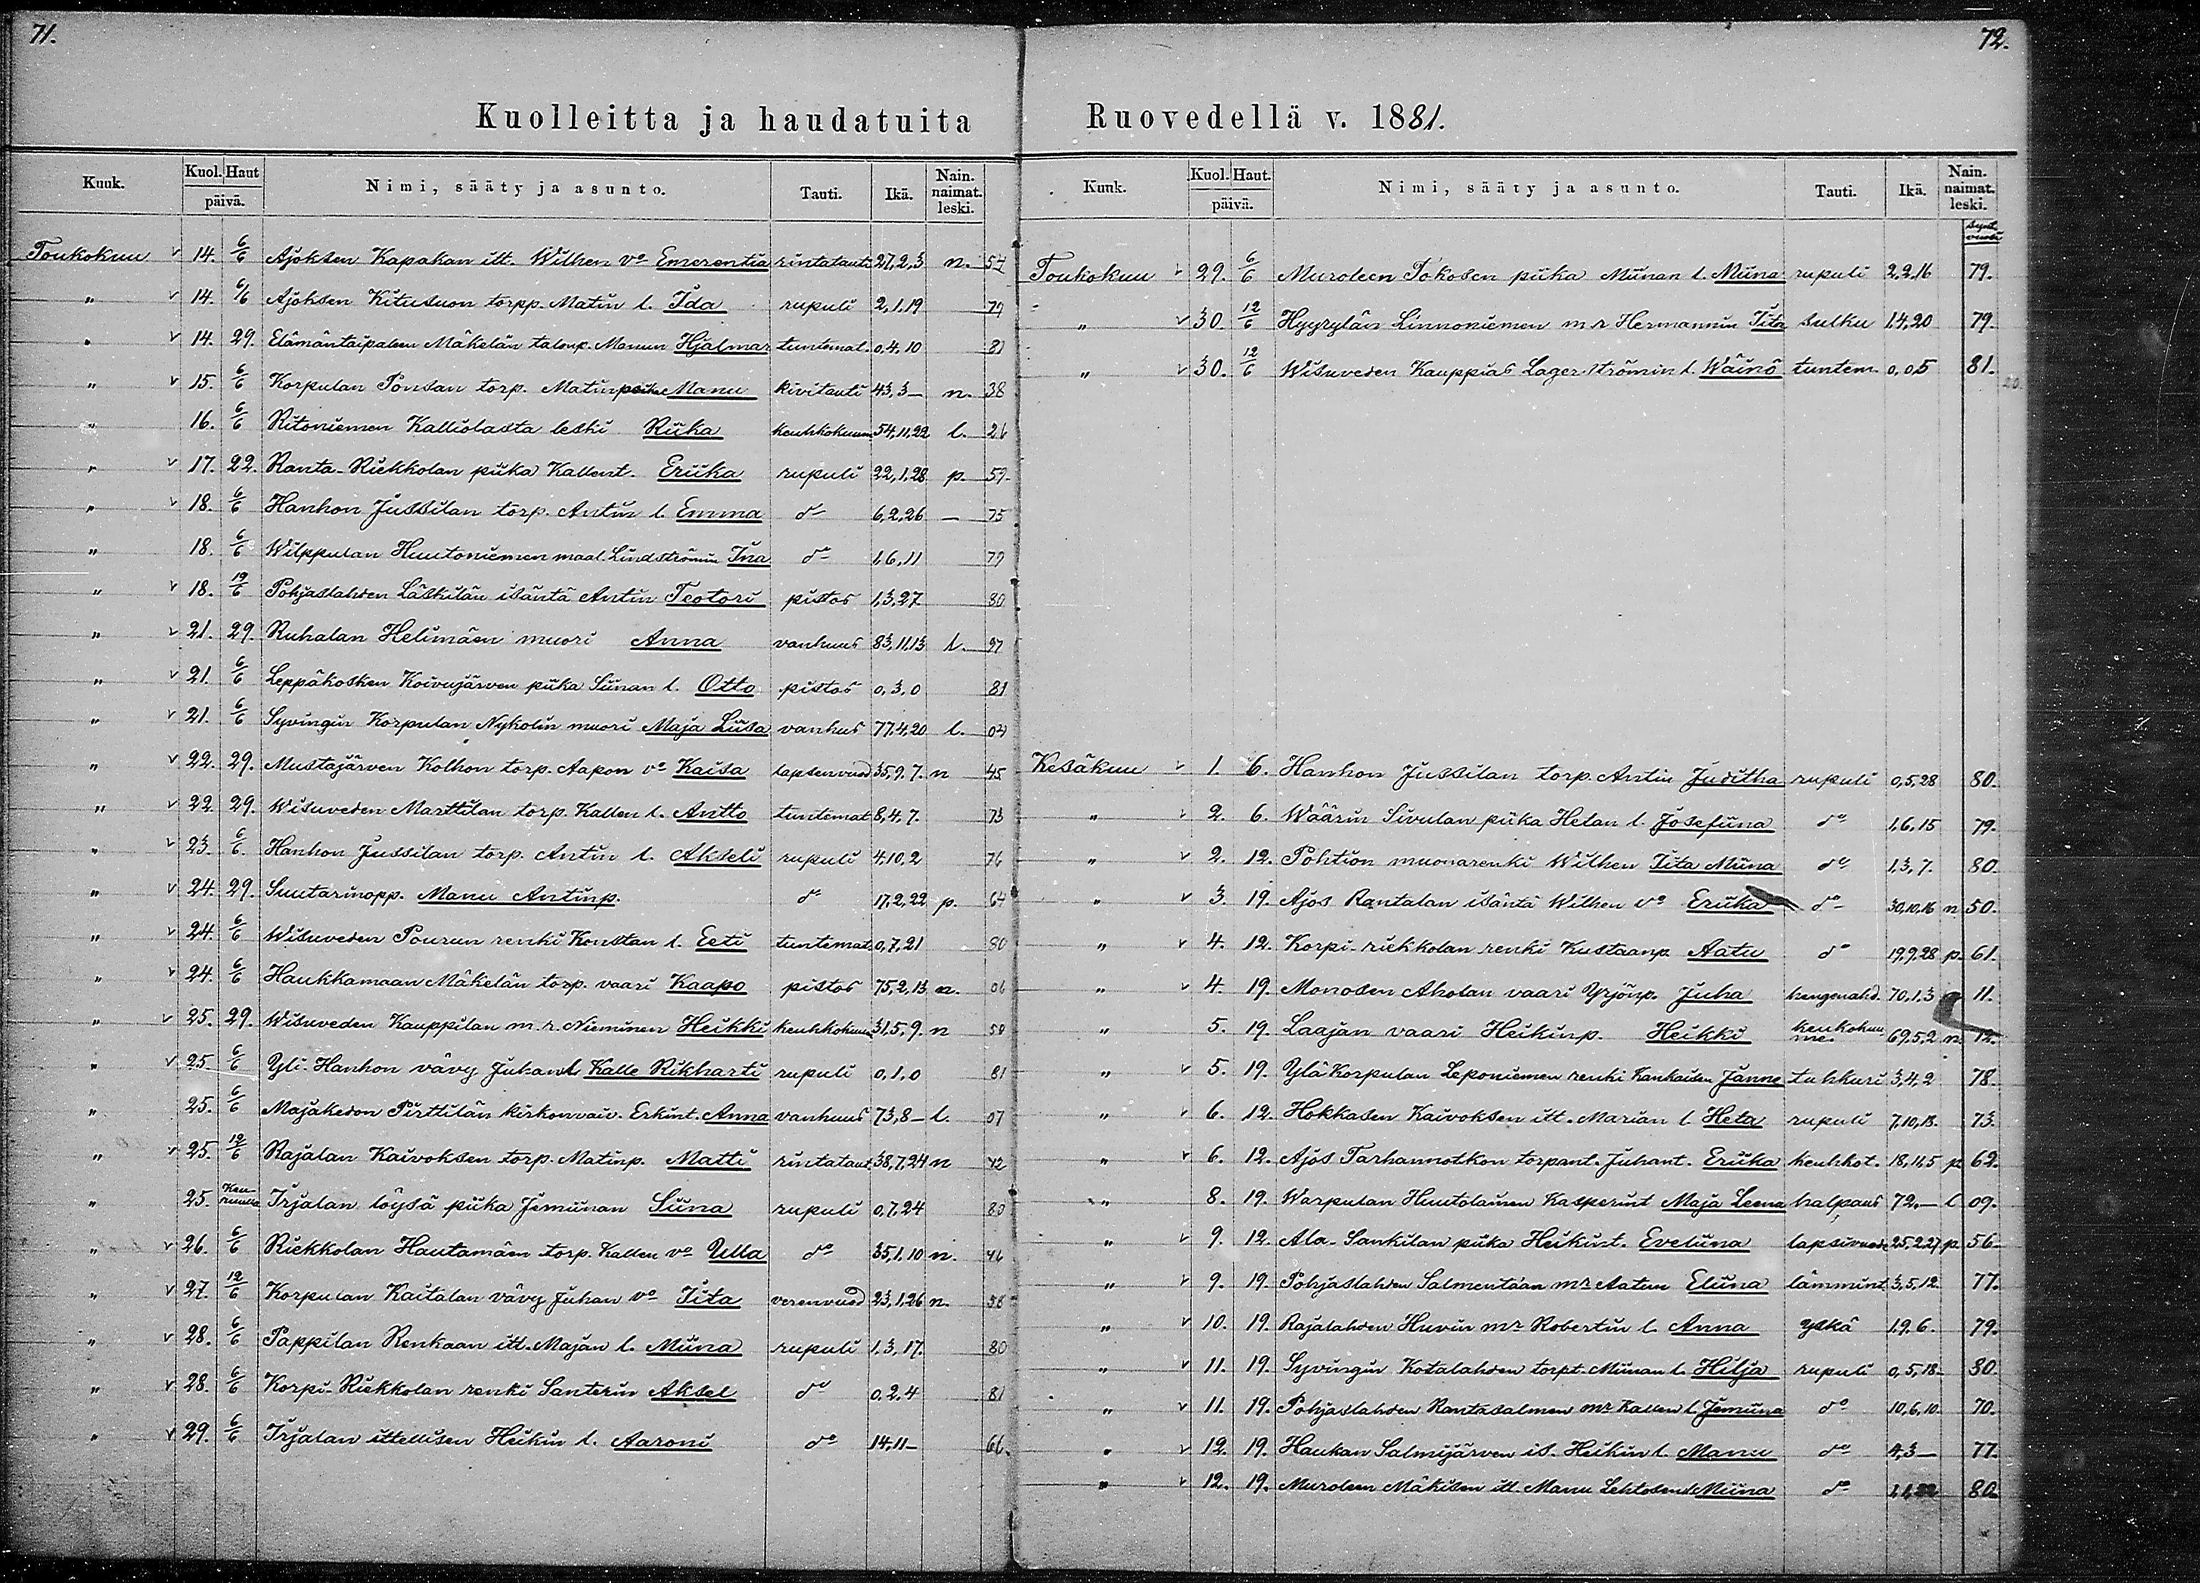 71.
Kuolleitta ja haudatuita
Kuuk. Kuol. Haut päivä. Nimi, sääty ja asunto. Tauti. Ikä. Nain. naimat. leski.
Toukokuu v 14. 6/6 Ajoksen Kapakan itt. Wilhen vo Emerentia rintatauti 27,2,3 n. 54
" v 14. 6/6 Ajoksen Kitusuon torpp. Matin l. Ida rupuli 2,1,19 79
" v 14. 29. Elämäntaipaleen Mäkelän talonp. Manun Hjalmar tuntemat. 0,4,10 81
" v 15. 6/6 Korpulan Ponsan torp. Matinpoika Manu kivitauti 43,3- n. 38
" 16. 6/6 Ritoniemen Kalliolasta leski Riika keuhkokuum 54,11,22 l. 26
" v 17. 22. Ranta-Riekkolan piika Kallent. Eriika rupuli 22,1,28 p. 59.
" v 18. 6/6 Hanhon Jussilan torp. Antin l. Emma do 6,2,26 - 75
" 18. 6/6 Wilppulan Huutoniemen maal. Lindströmin Ina do 1,6,11 79
" v 18. 19/6 Pohjaslahden Läskilän isäntä Antin Teotori pistos 1,3,27 80
" v 21. 29. Ruhalan Helimäen muori Anna vanhuus 83,11,13 l. 97
" v 21. 6/6 Leppäkosken Koivujärven piika Siinan l. Otto pistos 0,3,0 81
" v 21. 6/6 Syvingin Korpulan Nykolin muori Maja Liisa vanhus 77,4,20 l. 04
" v 22. 29. Mustajärven Kolhon torp. Aapon vo Kaisa lapsenvuod 35,9,7. n 45
" v 22. 29. Wisuveden Marttilan torp. Kallen l. Antto tuntemat 8,4,7. 73
" v 23. 6/6. Hanhon Jussilan torp. Antin l. Akseli rupuli 4,10,2 76
" v 24. 29. Suutarinopp. Manu Antinp. do 17,2,22 p. 64
" v 24. 6/6 Wisuveden Pourun renki Konstan l. Eeti tuntemat 0,7,21 80
" v 24. 6/6 Haukkamaan Mäkelän torp. vaari Kaapo pistos 75,2,13 n. 06
" v 25. 29. Wisuveden Kauppilan m.r. Nieminen Heikki keuhkokuum 31,5,9. n 50
" v 25 6/6 Yli-Hanhon vävy Juhan l. Kalle Rikharti rupuli 0,1,0 81
" 25. 6/6 Majakedon Pirttilän kirkonvaiv. Erkint. Anna vanhuus 73,8- l. 07
" v 25. 12/6 Rajalan Kaivoksen torp. Matinp. Matti rintataut 38,7,24 n 42
" 25. Keuruulla Irjalan löysä piika Jemiinan Siina rupuli 0,7,24 80
" v 26. 6/6 Riekkolan Hautamäen torp. Kallen vo Ulla do 35,1,10 n. 46
" v 27. 12/6 Korpulan Kaitalan vävy Juhan vo Iita verenvuod 23,1,26 n. 58
" v 28. 6/6 Pappilan Renkaan itt. Majan l. Miina rupuli 1,3,17. 80
" v 28. 6/6 Korpi-Riekkolan renki Santerin Aksel do 0,2,4 81
" v 29. 6/6 Irjalan ittellisen Heikin l. Aaroni do 14,11- 66.
72.
Ruovedellä v. 1881.
Kuuk. Kuol. Haut. päivä. Nimi, sääty ja asunto. Tauti. Ikä. Nain. naimat. leski.
Synt. vuosi
Toukokuu v 29. 6/6 Muroleen Pokosen piika Miinan l. Miina rupuli 2,2,16 79.
" v 30. 12/6 Hyyrylän Linnoniemen m.r. Hermannin Iita sulku 1,4,20 79.
" v 30. 12/6 Wisuveden Kauppias Lagerströmin l. Wäinö tuntem. 0,0,5 81.
Kesäkuu v 1. 6. Hanhon Jussilan torp. Antin Juditha rupuli 0,5,28 80.
" v 2. 6. Wäärin Sivulan piika Helan l. Josefiina do 1,6,15 79.
" v 2. 12. Pohtion muonarenki Wilhen Iita Miina do 1,3,7. 80.
" v 3. 19. Ajos Rantalan isäntä Wilhen vo Eriika do 30,10,16 n 50.
" v 4. 12. Korpi-riekkolan renki Kustaanp. Aatu do 19,9,28 p. 61.
" v 4. 19. Monosen Aholan vaari Yrjönp. Juha hengenahd. 70,1,3 11.
" 5. 19. Laajan vaari Heikinp. Heikki keukokuume. 69,5,2 n. 12.
" v 5. 19. Ylä Korpulan Leponiemen renki Kankaisen Janne tuhkuri 3,4,2 78.
" v 6. 12. Hokkasen Kaivoksen itt. Marian l. Heta rupuli 7,10,18. 73.
" v 6. 12. Ajos Tarhannotkon torpant. Juhant. Eriika keuhkot. 18,11,5 p. 62.
" 8. 19. Warpulan Huutolainen Kasperint Maja Leena halpaus 72,- l 09.
" v 9. 12. Ala-Sankilan piika Heikint. Eveliina lapsivuode 25,2,27 p. 56
" v 9. 19. Pohjaslahden Salmentaan mr Aatun Eliina lämmint. 3,5,12. 77.
" v 10. 19. Rajalahden Huvin mr Robertin l. Anna yskä 1,9,6. 79.
" v 11. 19. Syvingin Kotalahden torpt. Miinan l. Hilja rupuli 0,5,18. 80.
" v 11. 19. Pohjaslahden Rantasalmen mr Kallen l. Jemiina do 10,6,10. 70.
" v 12. 19. Haukan Salmijärven is. Heikin l. Manu do 4,3- 77.
" v 12. 19. Muroleen Mäkisen itt Manu Lehtosen l. Miina do 80.